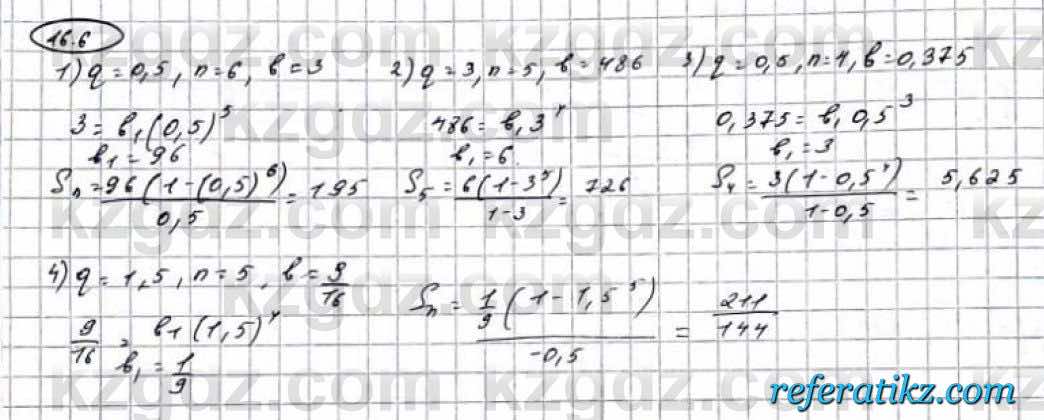 16.6
1) q = 0,5, n=6, b = 3
3 = b₁(0,5)⁵
b₁ = 96
Sₙ = 96(1-(0,5)⁶) / 0,5 = 195
2) q = 3, n=5, b = 486
486 = b₁3⁴
b₁ = 6
S₅ = 6(1-3⁵) / 1-3 = 726
3) q = 0,5, n=4, b = 0,375
0,375 = b₁ 0,5³
b₁ = 3
S₄ = 3(1-0,5⁴) / 1-0,5 = 5,625
4) q = 1,5, n = 5, b = 9/16
9/16 = b₁(1,5)⁴
b₁ = 1/9
Sₙ = 1/9(1-1,5⁵) / -0,5 = 211/144
kzgdz.com
referatikz.com